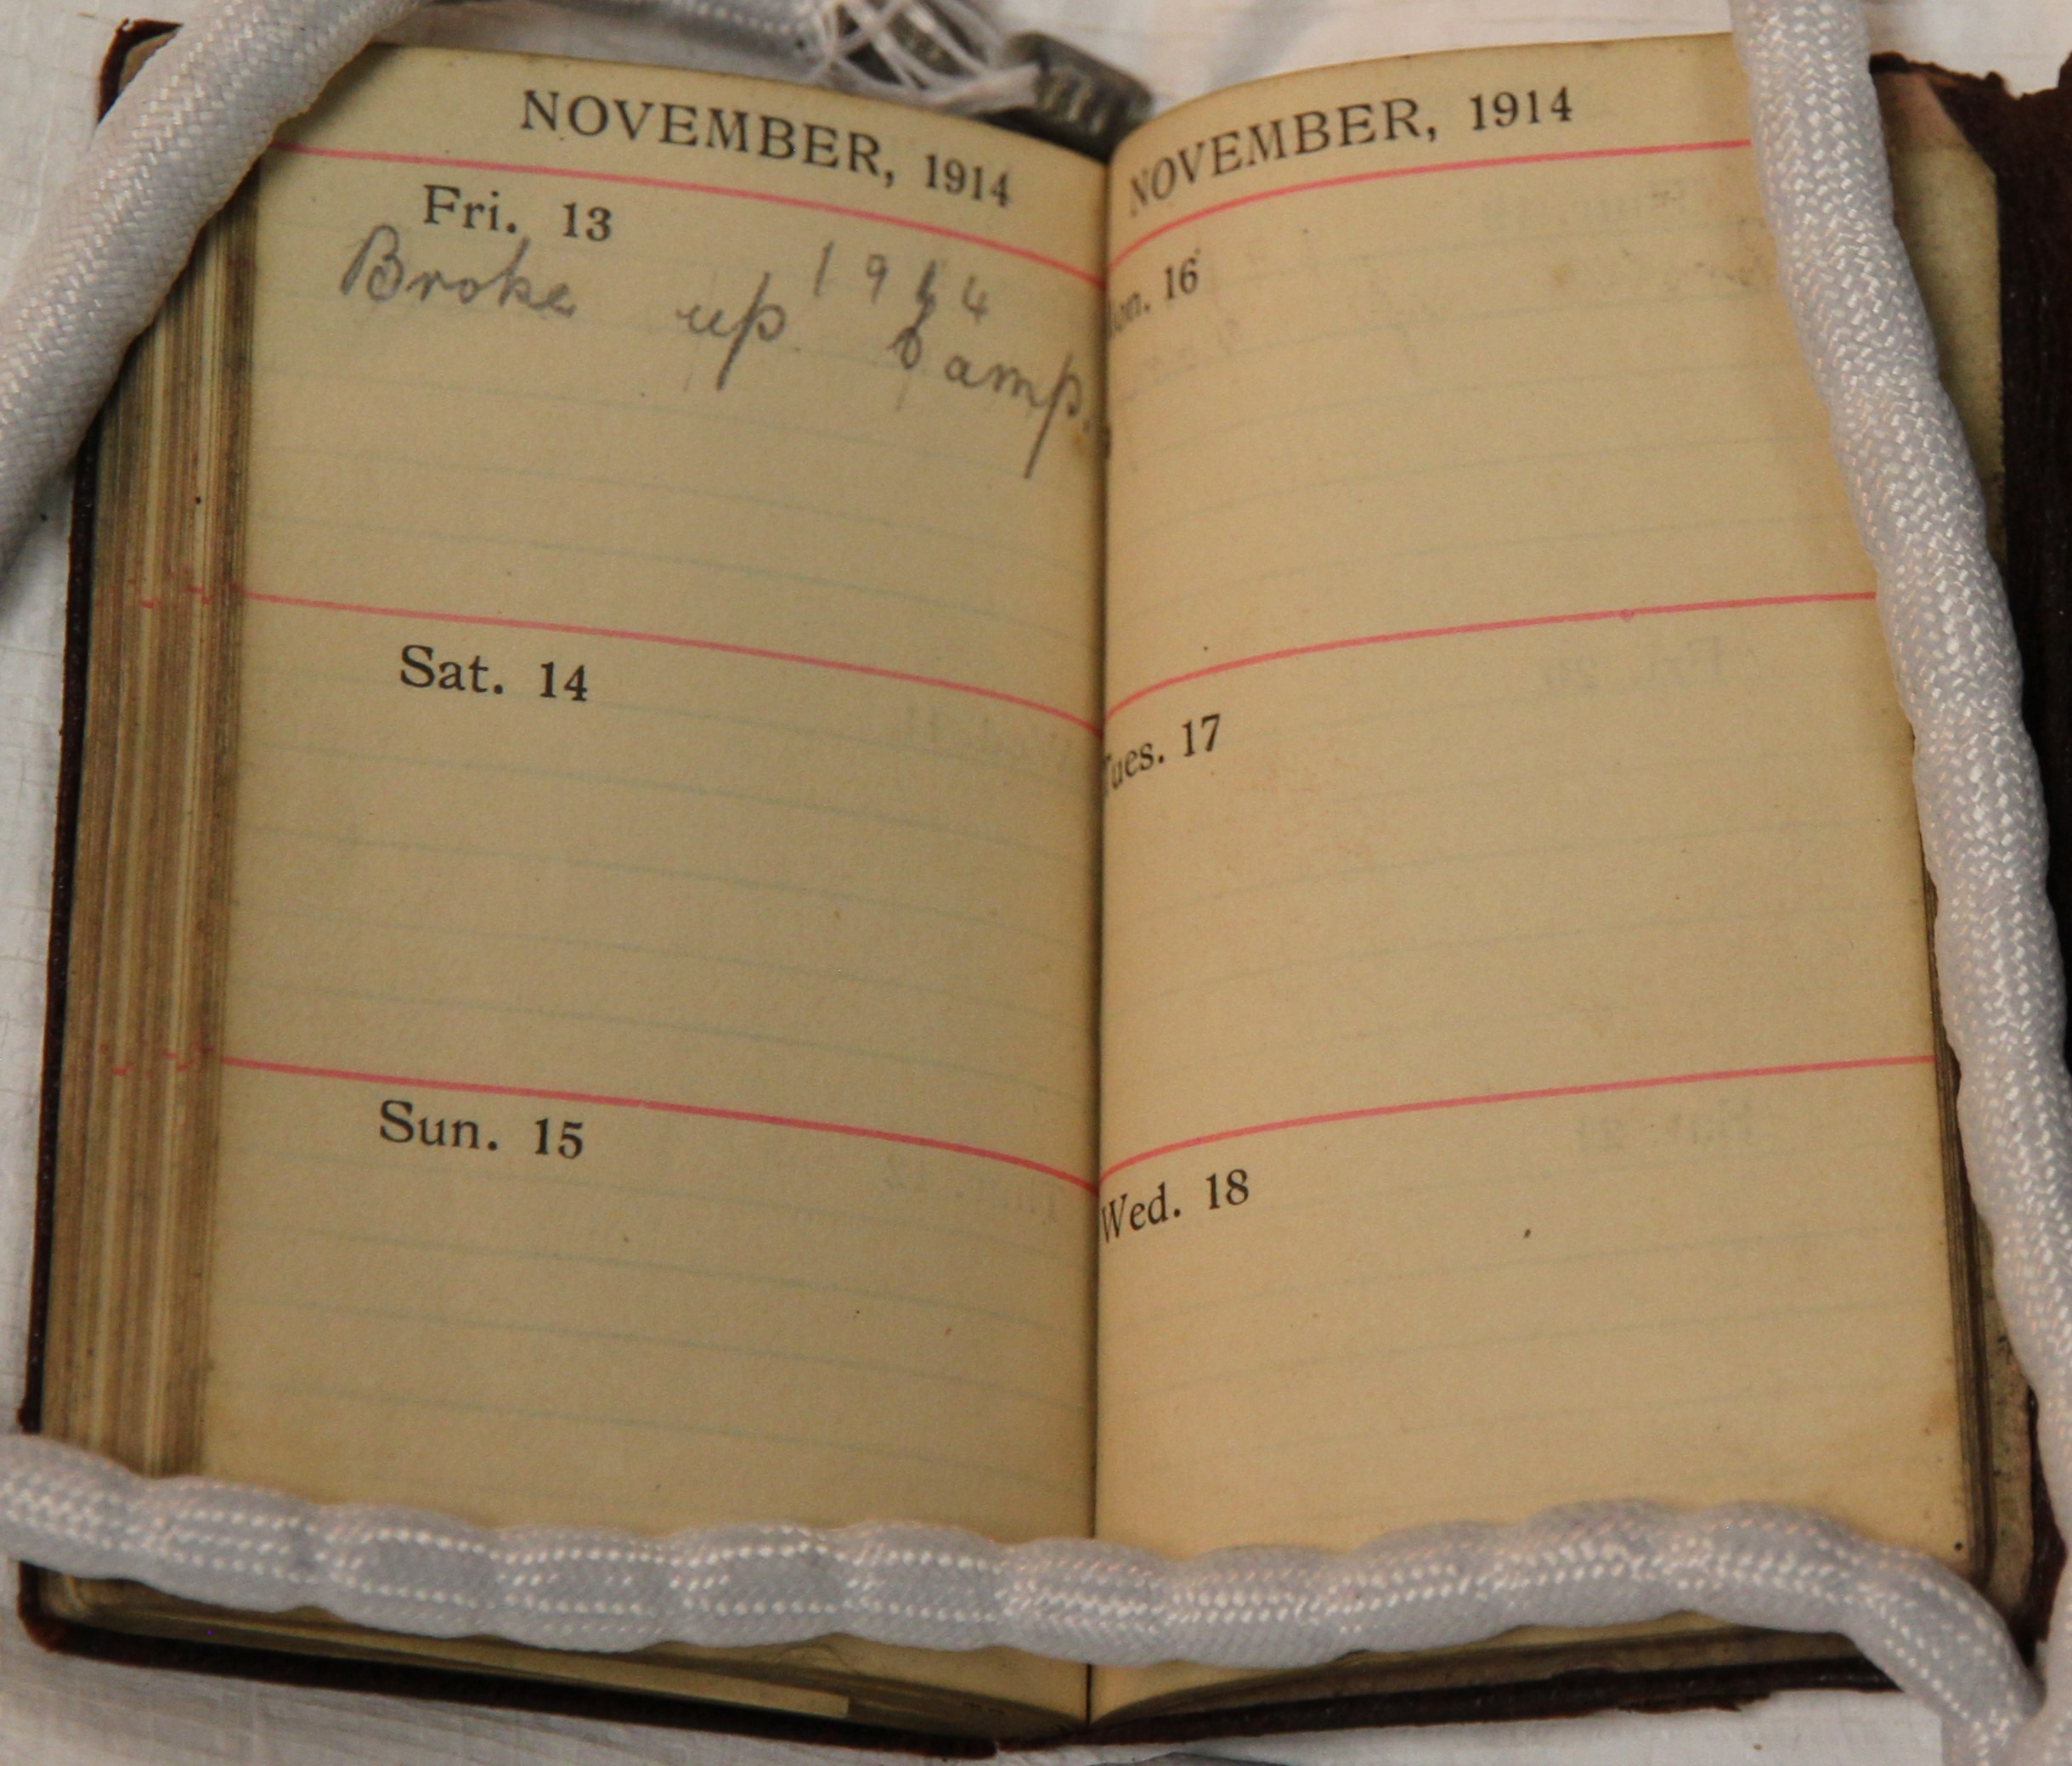 NOVEMBER, 1914
Fri. 13
1914
Broke up Camp.
Sat. 14
Sun. 15
NOVEMBER, 1914
Mon. 16
Tues. 17
Wed. 18